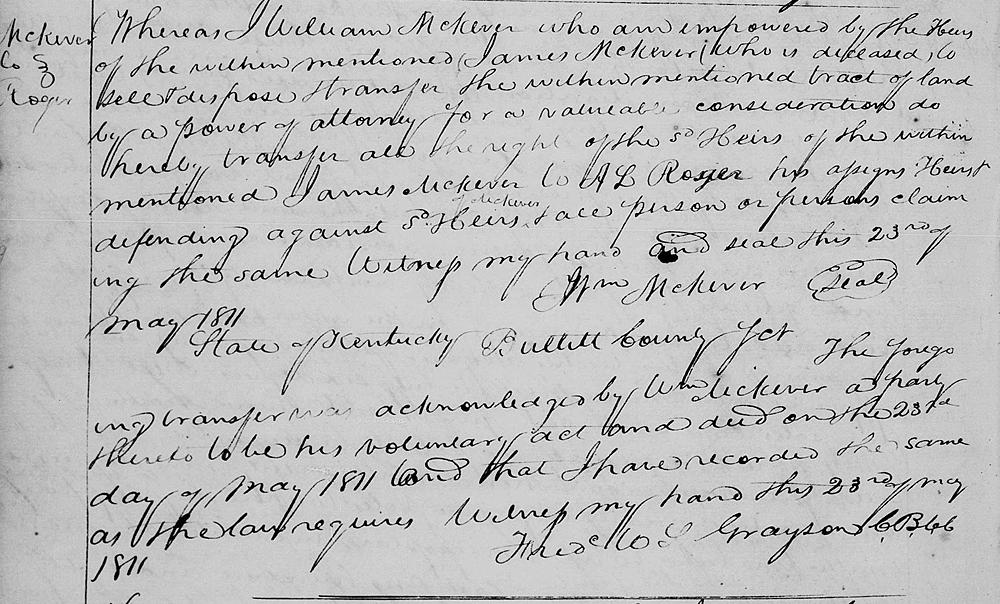 McKever
to }
Roger
Whereas I William McKever who am empowered by the Heirs
of the within mentioned (James McKever) who is deceased, to
sell & dispose & transfer the within mentioned tract of land
by a power of attorney for a valueable consideration do
hereby transfer all the right of the sd Heirs of the within
mentioned James McKever to A L Roger his assigns Heirs &
of McKever
defending against sd Heirs & all person or persons claim
ing the same Witness my hand and seal this 23rd of
May 1811
Wm McKever Seal
State of Kentucky Bullitt County Sct The forego
ing transfer was acknowledged by Wm McKever a party
thereto to be his voluntary act and deed on the 23rd
day of May 1811 and that I have recorded the same
as the law requires Witness my hand this 23rd of may
1811
Fredc W S Grayson C B C C